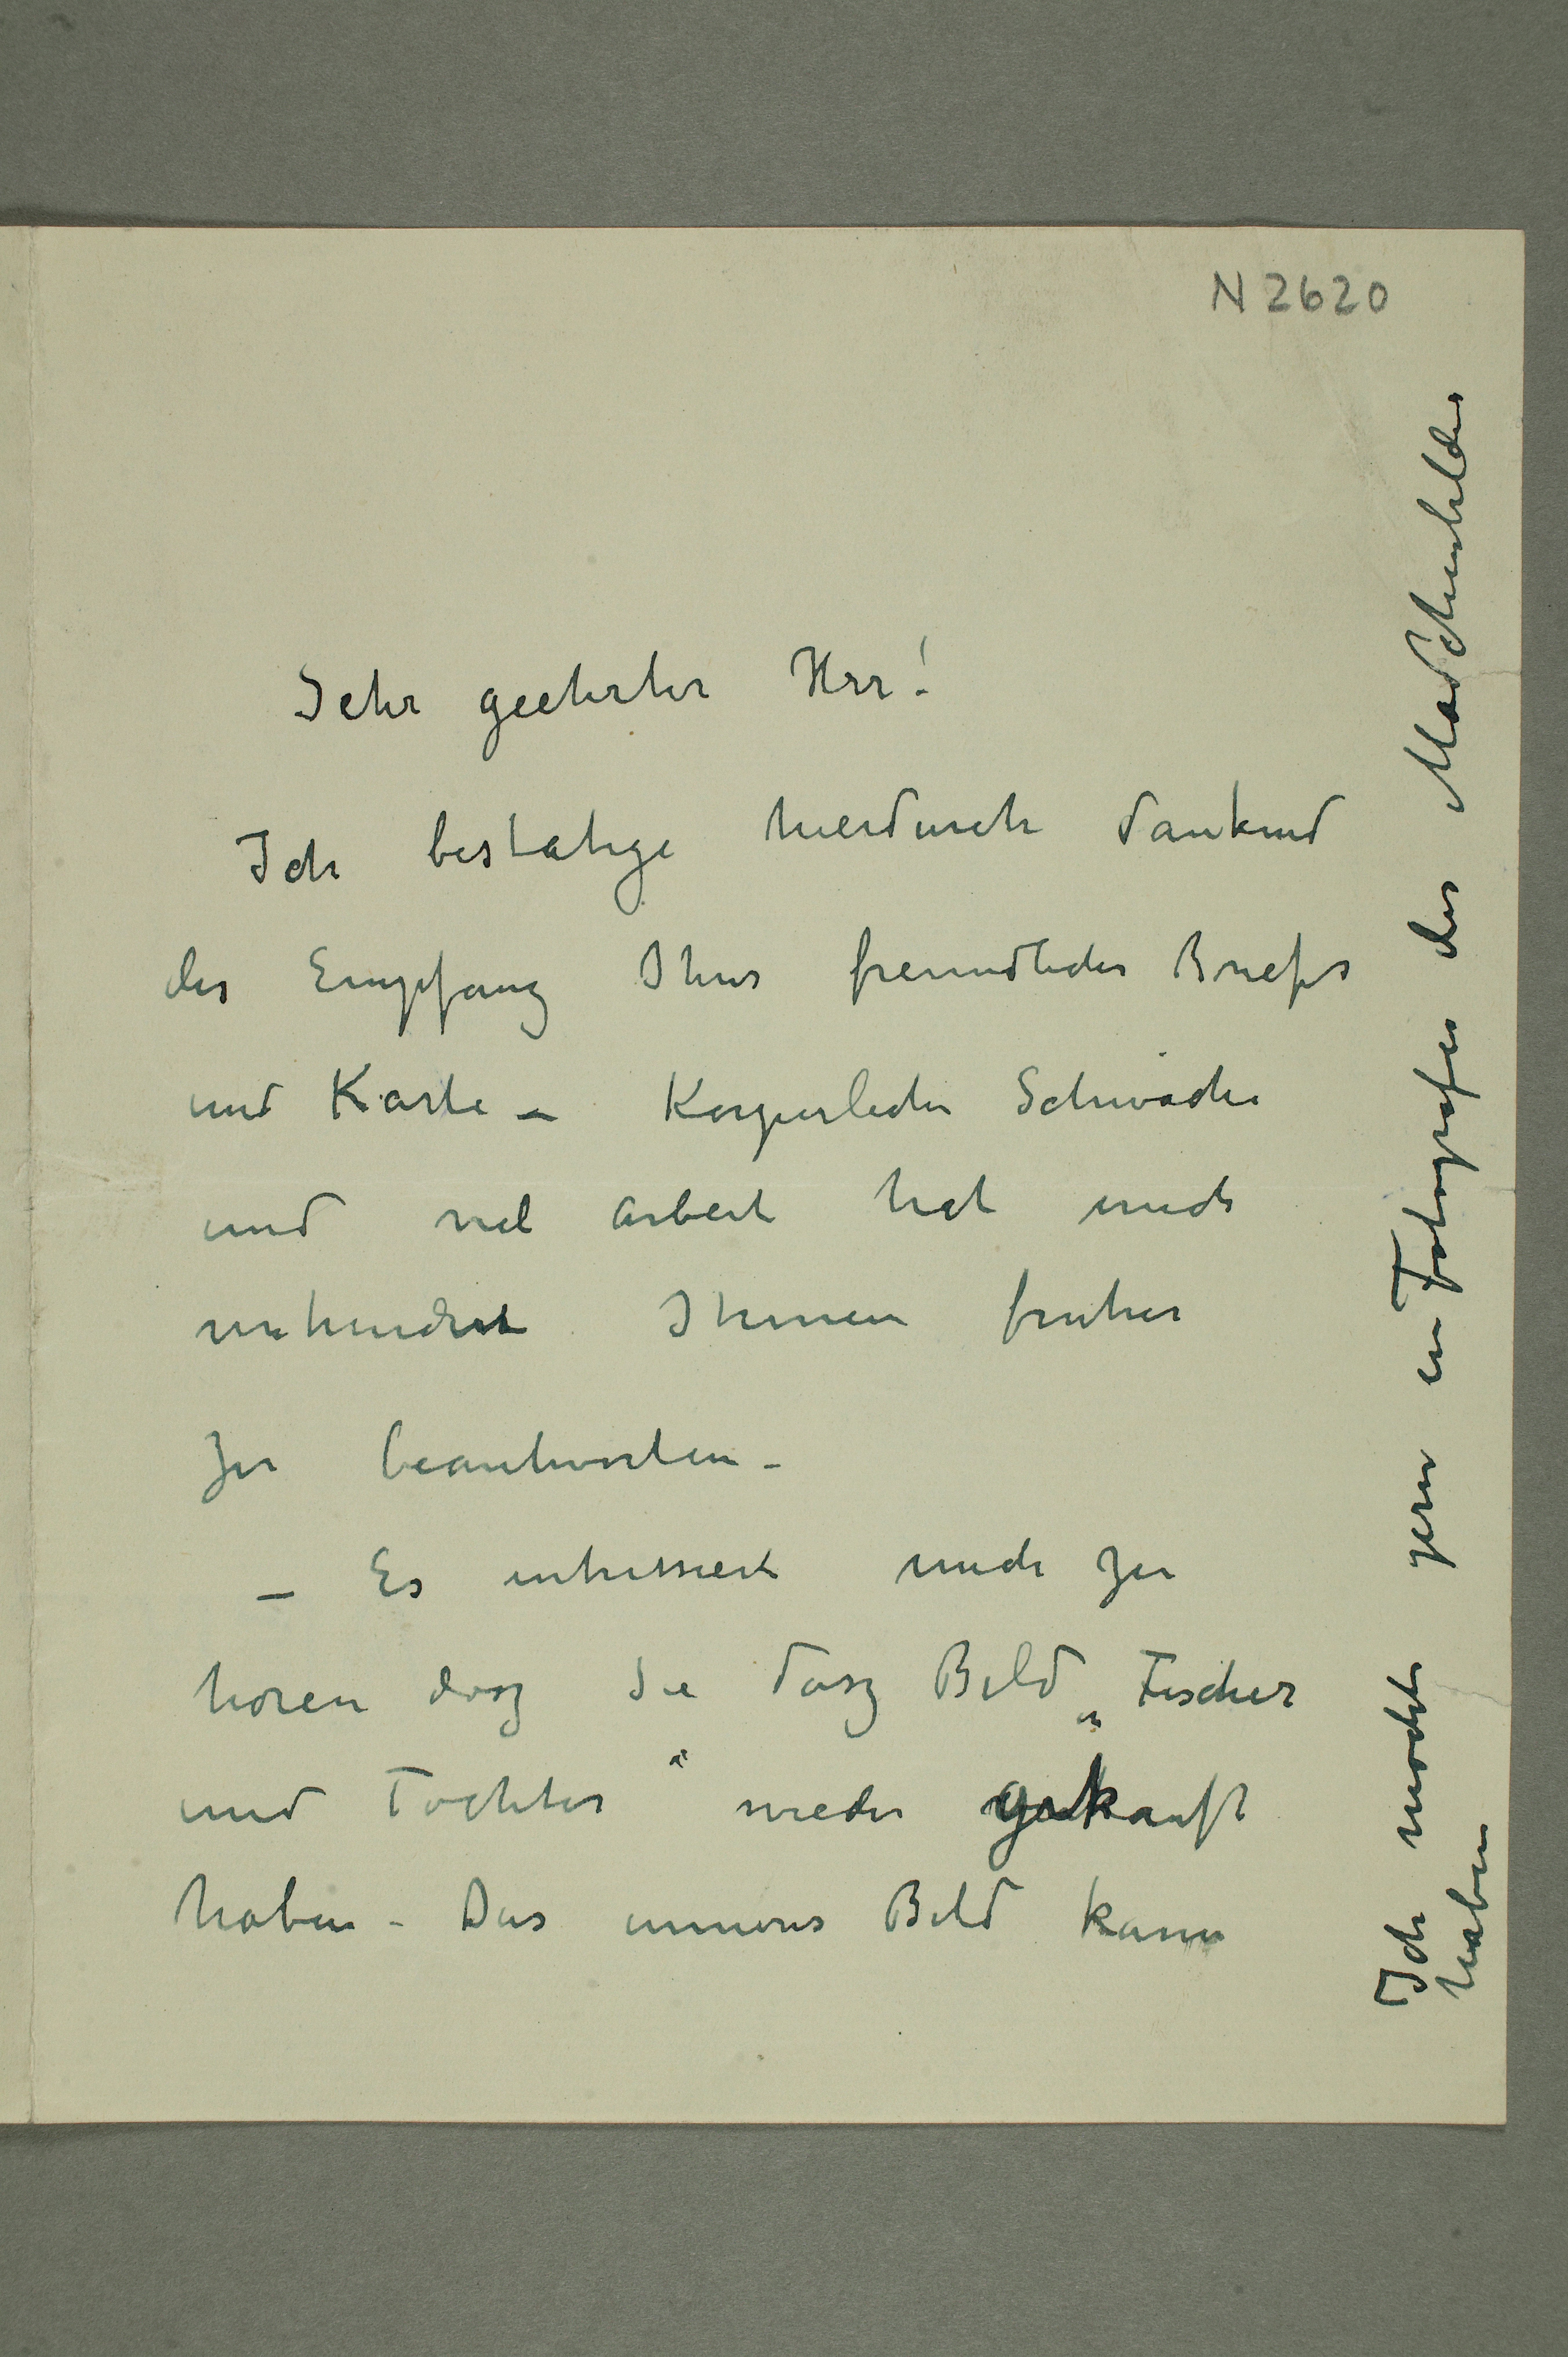 N 2620
Sehr geehrter Herr!
Ich bestatige hierdurch dankend
des Empfang Ihres freundliches Briefes
und Karte – Korperliche Schwäche
und viel arbeit hat mich
verhindert Ihnen fruher
zu beantworten –
– Es intressiert mich zu
horen dasz Sie dasz Bild „Fischer
und Tochter“ wieder gekauft
haben – Das Bild kann
Ich mochte gern ein Fotografie des Madchenbildes
haben